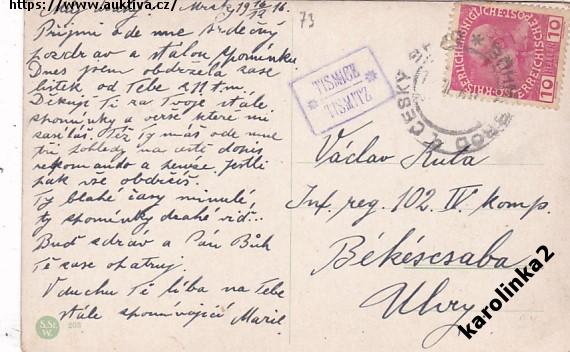 https://www.auktiva.cz/
Mrak 19 16/12 16.
73
Přijmi ode mne srdečný
pozdrav a stálou vpomínku.
Dnes jsem obdržela zase
lístek od Tebe z 11 tm.
Děkuji Ti za Tvoje stále
spomínky a verše které mi
zasíláš. Též ty máš ode mne
tři pohledy na cestě dopis
rekomando a peníze, jestli
pak vše obdržíš.
Ty blahé časy minulé,
ty spomínky drahé
Buď zdráv a Pán Bůh
Tě zase opatruj.
V duchu Tě líbá na Tebe
stále spomínající Marie
TISMICE
TISMITZ
ČESKÝ BROD
BÖHM. BROD
KAISERLICHE KÖNIGLICHE ÖSTERREICHISCHE POST
10 HELLER 10
Václav Kuta
Inf. reg. 102 IV. komp.
Békéscsaba
Uhry
S.St.
W.
203
karolinka2